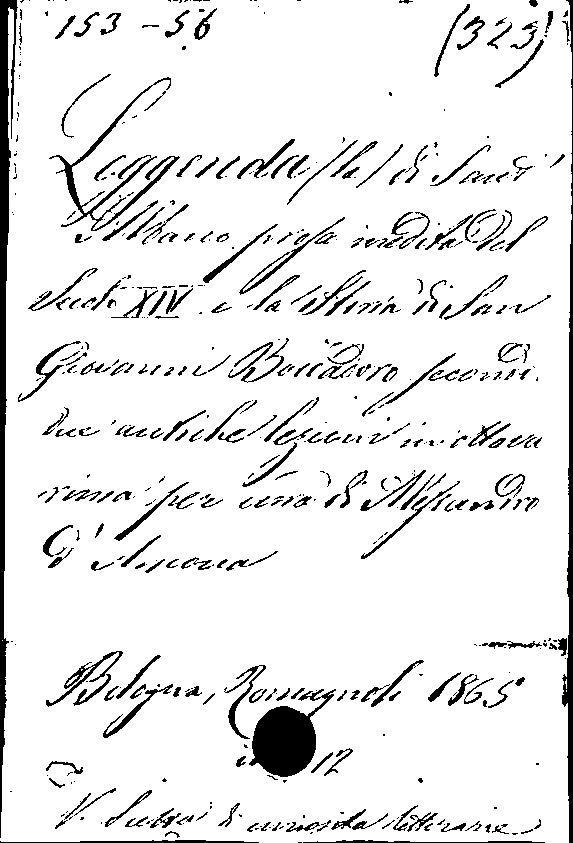 153-56 (323)
Leggenda (la) di Sant'
Albano. prosa inedita del
Secolo XIV e la Storia di San
Giovanni Boccadoro secondo
due antiche lezioni in ottava
rima per cura di Alessandro
D'Ancona
Bologna, Romagnoli 1865
in 12
V. Scelta di curiosità letterarie